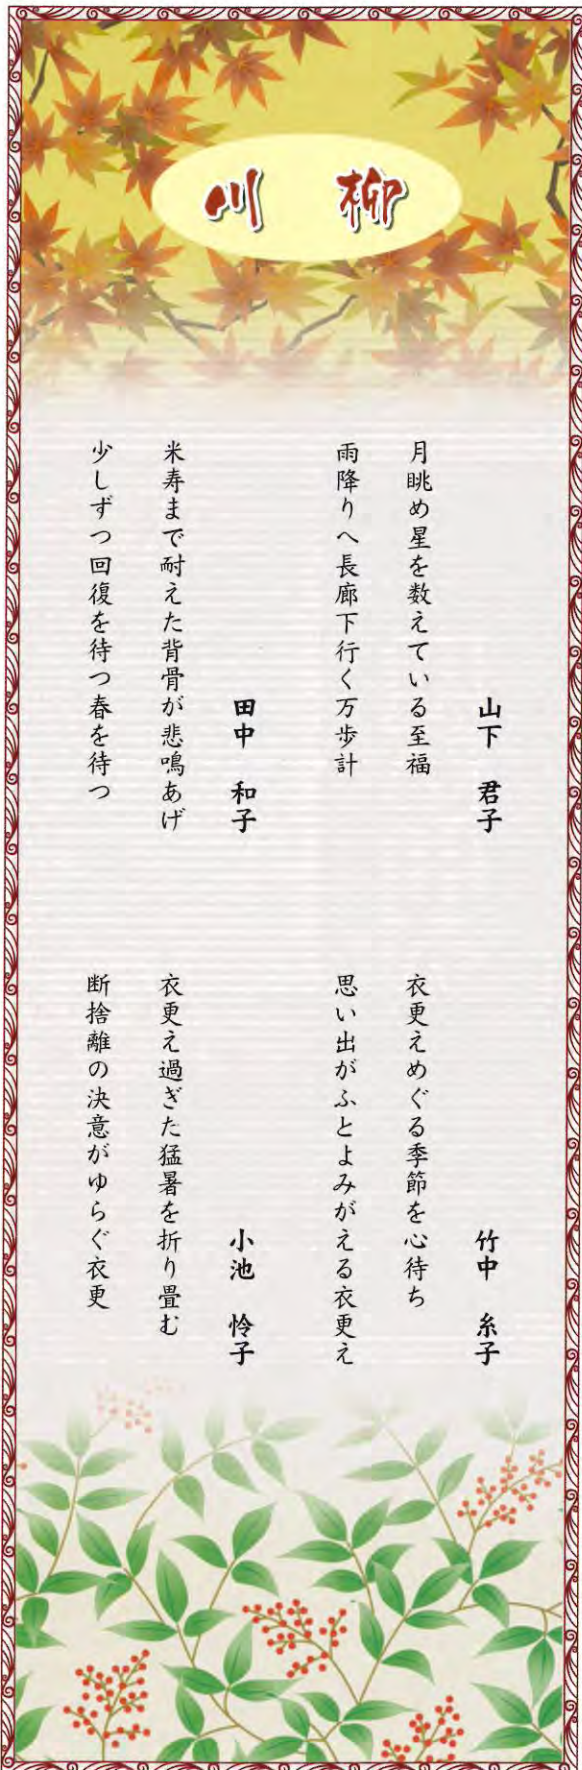 川柳
山下 君子
月眺め星を数えている至福
雨降りへ長廊下行く万歩計
田中 和子
米寿まで耐えた背骨が悲鳴あげ
少しずつ回復を待つ春を待つ
竹中 糸子
衣更えめぐる季節を心待ち
思い出がふとよみがえる衣更え
小池 怜子
衣更え過ぎた猛暑を折り畳む
断捨離の決意がゆらぐ衣更